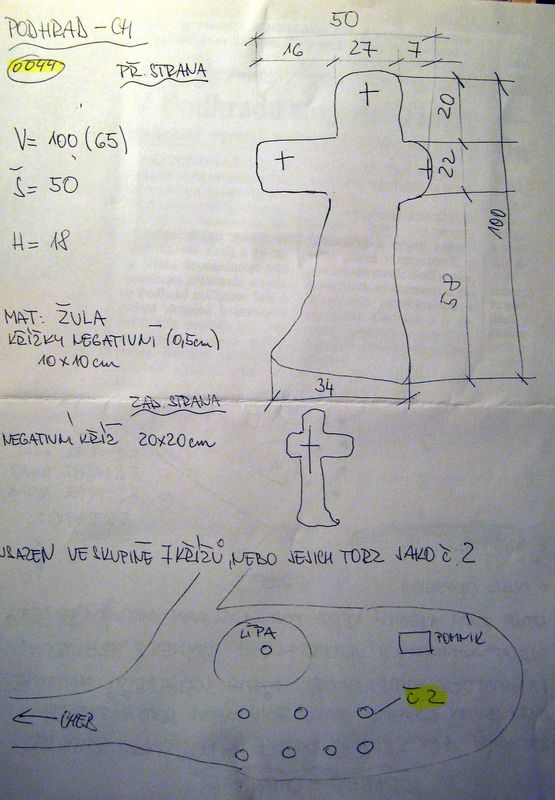 PODHRAD - CH
0044
PŘ. STRANA
50
16
27
7
20
22
58
100
34
V = 100 (65)
Š = 50
H = 18
MAT: ŽULA
KŘÍŽKY NEGATIVNÍ (0,5cm)
10x10cm
ZAD. STRANA
NEGATIVNÍ KŘÍŽ 20x20cm
USAZEN VE SKUPINĚ 7 KŘÍŽŮ, NEBO JEJICH TORZ JAKO Č. 2
LÍPA
POMNÍK
Č. 2
CHEB